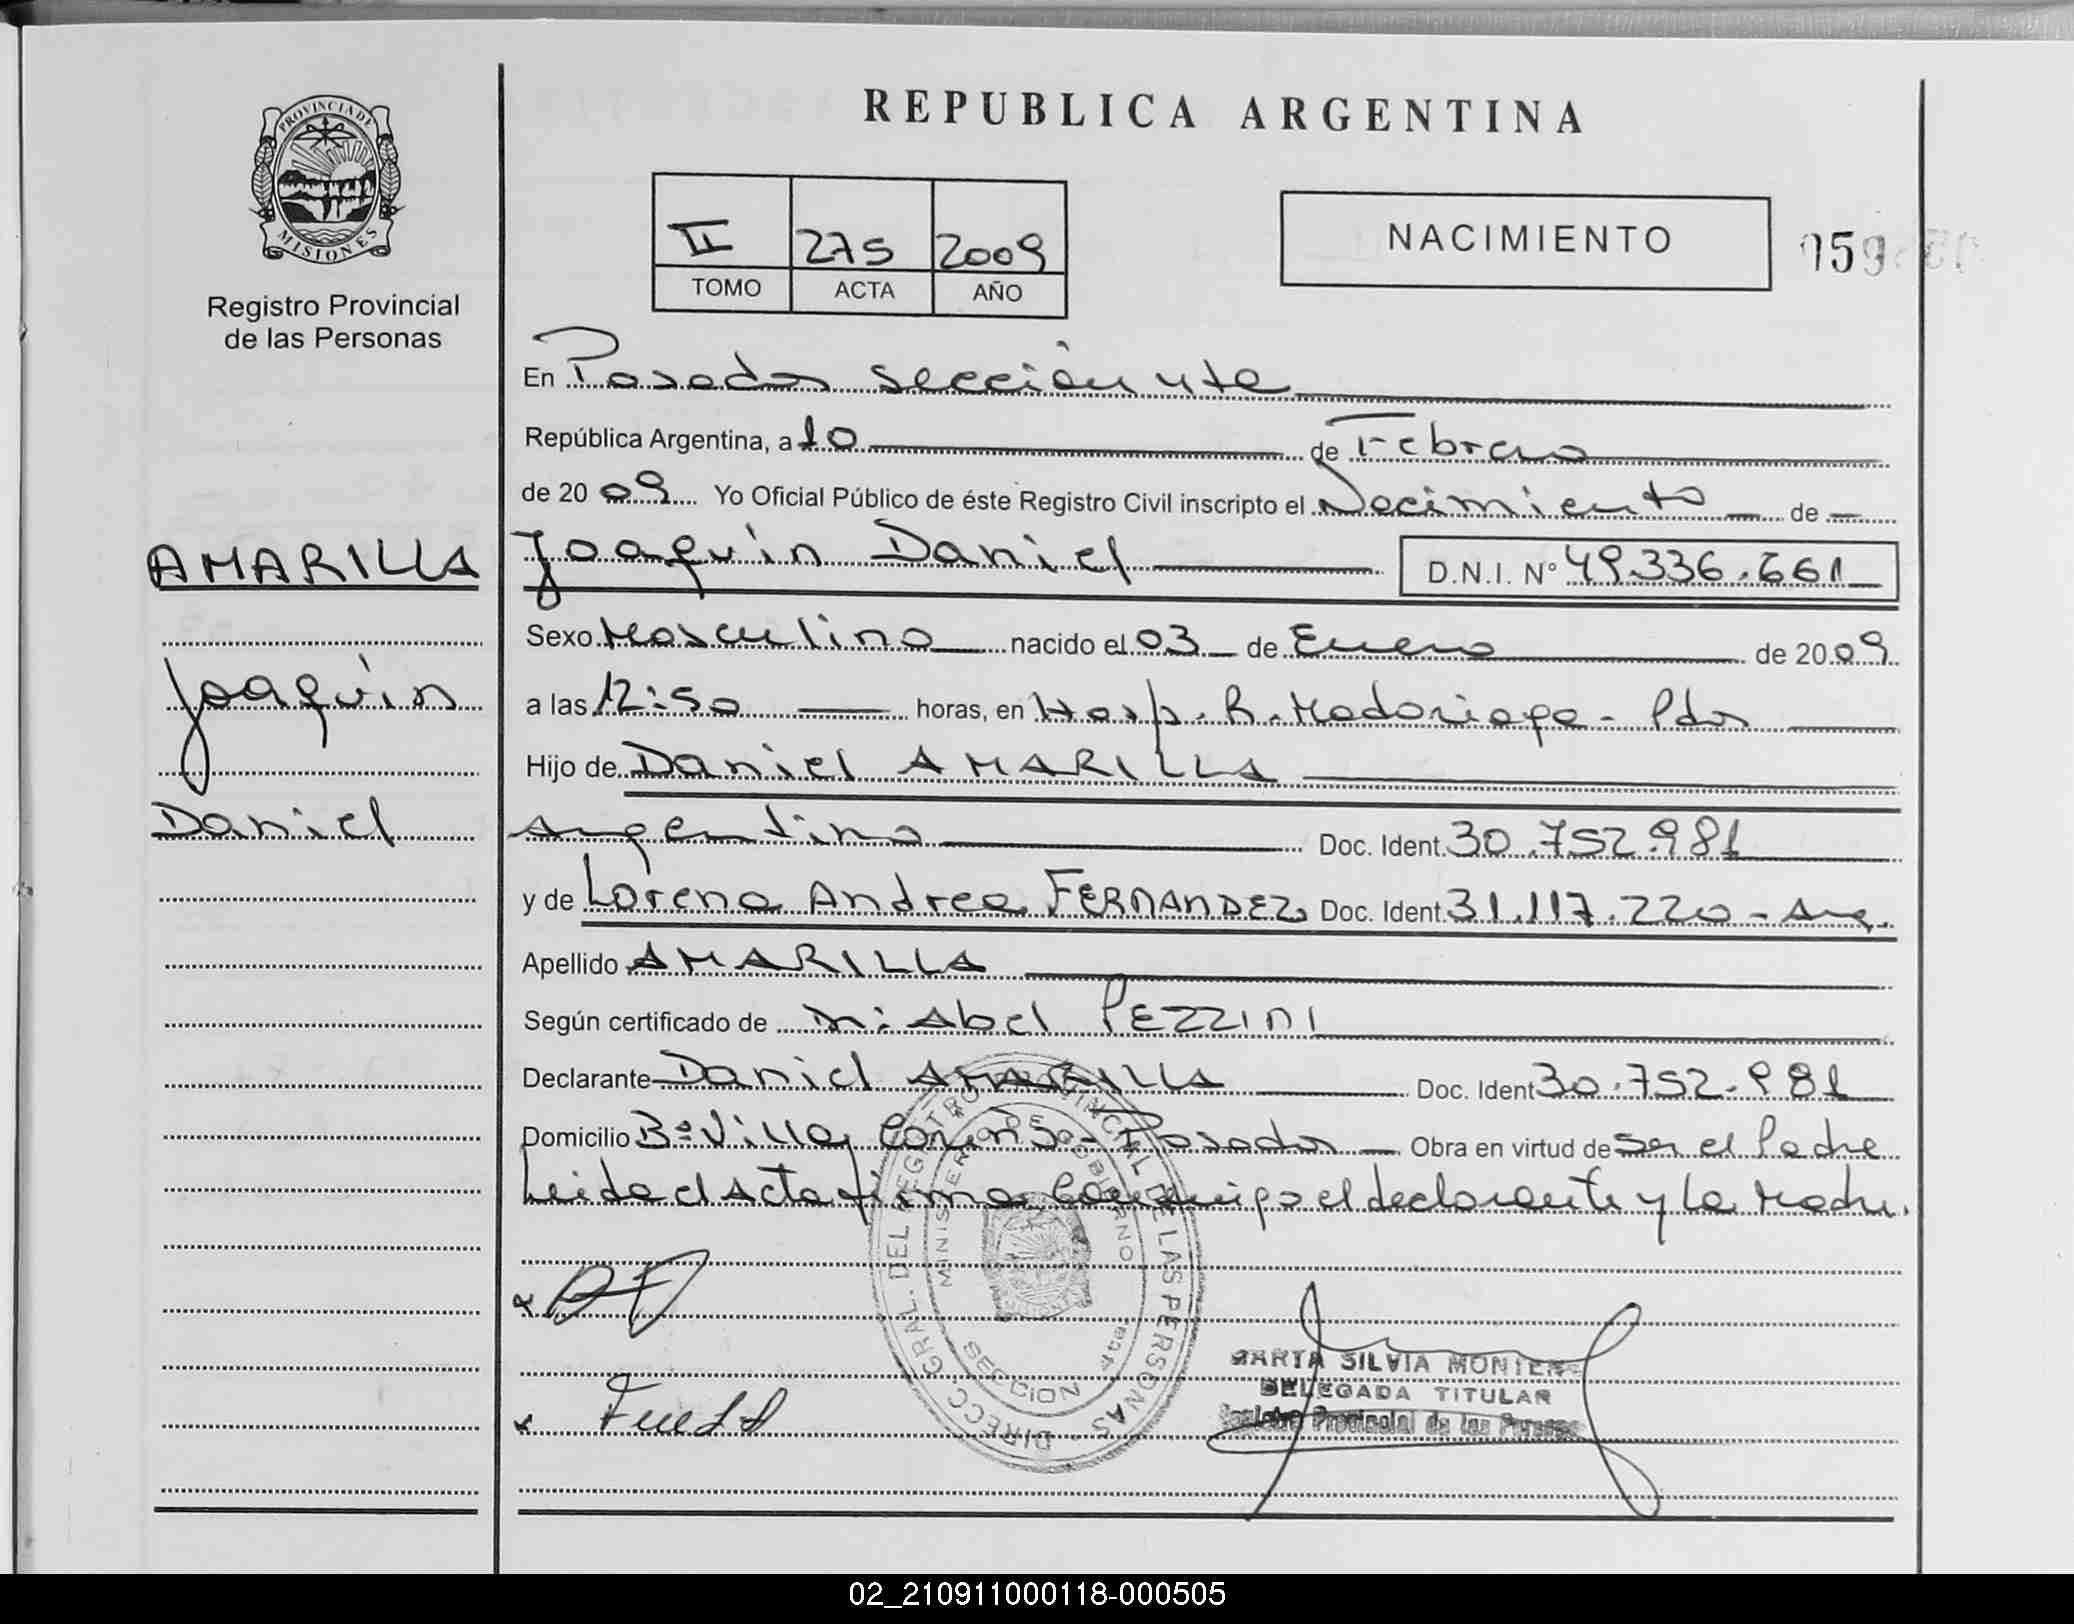 REPUBLICA ARGENTINA
PROVINCIA DE
MISIONES
Registro Provincial
de las Personas
II 275 2009
TOMO ACTA AÑO
NACIMIENTO
159
En Posadas sección 4ta
República Argentina, a 10 de Febrero
de 20 09 Yo Oficial Público de éste Registro Civil inscripto el Nacimiento de
AMARILLA
Joaquín Daniel D.N.I. N° 49.336.661
Sexo Masculino nacido el 03 de Enero de 20 09
Joaquín
a las 12:50 horas, en Hosp. R. Madariaga - Pdas
Hijo de Daniel AMARILLA
Daniel
Argentino Doc. Ident. 30.752.981
y de Lorena Andrea FERNANDEZ Doc. Ident. 31.117.220 - Arg.
Apellido AMARILLA
Según certificado de Abel PEZZINI
Declarante Daniel AMARILLA Doc. Ident 30.752.981
Domicilio B° Villa Posadas Obra en virtud de Ser el Padre
Leida el Acta firma Conmigo el declarante y la Madre.
DIRECC. GRAL. DEL REGISTRO PROVINCIAL DE LAS PERSONAS
MINISTERIO DE GOBIERNO
SECCION 4ta.
MARTA SILVIA
DELEGADA TITULAR
Registro Provincial de las Personas
02_210911000118-000505